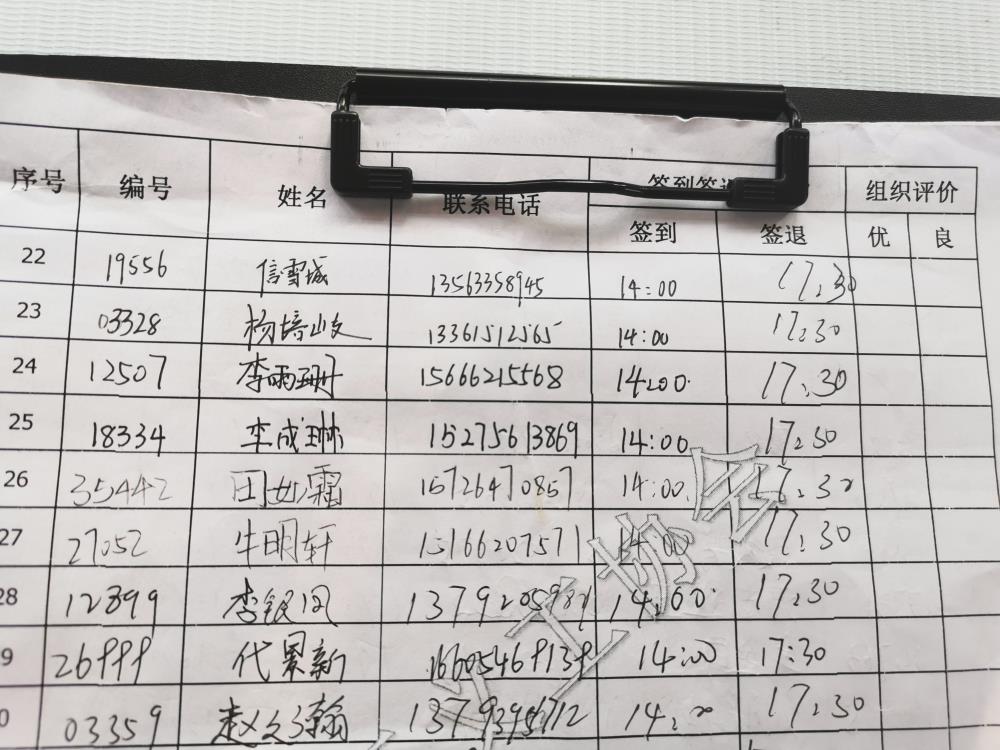 序号 编号 姓名 联系电话 签到签退 组织评价
签到 签退 优 良
22 19556 信雪城 13563358945 14:00 17:30
23 03328 杨培岐 13361512565 14:00 17:30
24 12507 李雨珊 15666215568 14:00 17:30
25 18334 李成琳 15275613869 14:00 17:30
26 35442 田如霜 15726470857 14:00 17:30
27 27052 牛明轩 15166207571 14:00 17:30
28 12899 李银凤 14:00 17:30
9 26999 代景新 14:00 17:30
0 03359 赵文瀚 14:00 17:30